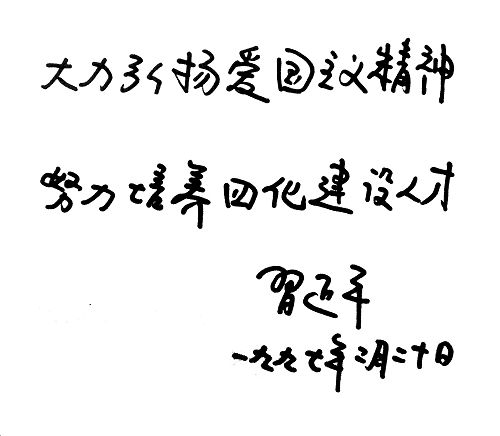 大力弘扬爱国主义精神
努力培养四化建设人才
習近平
一九九七年二月二十日